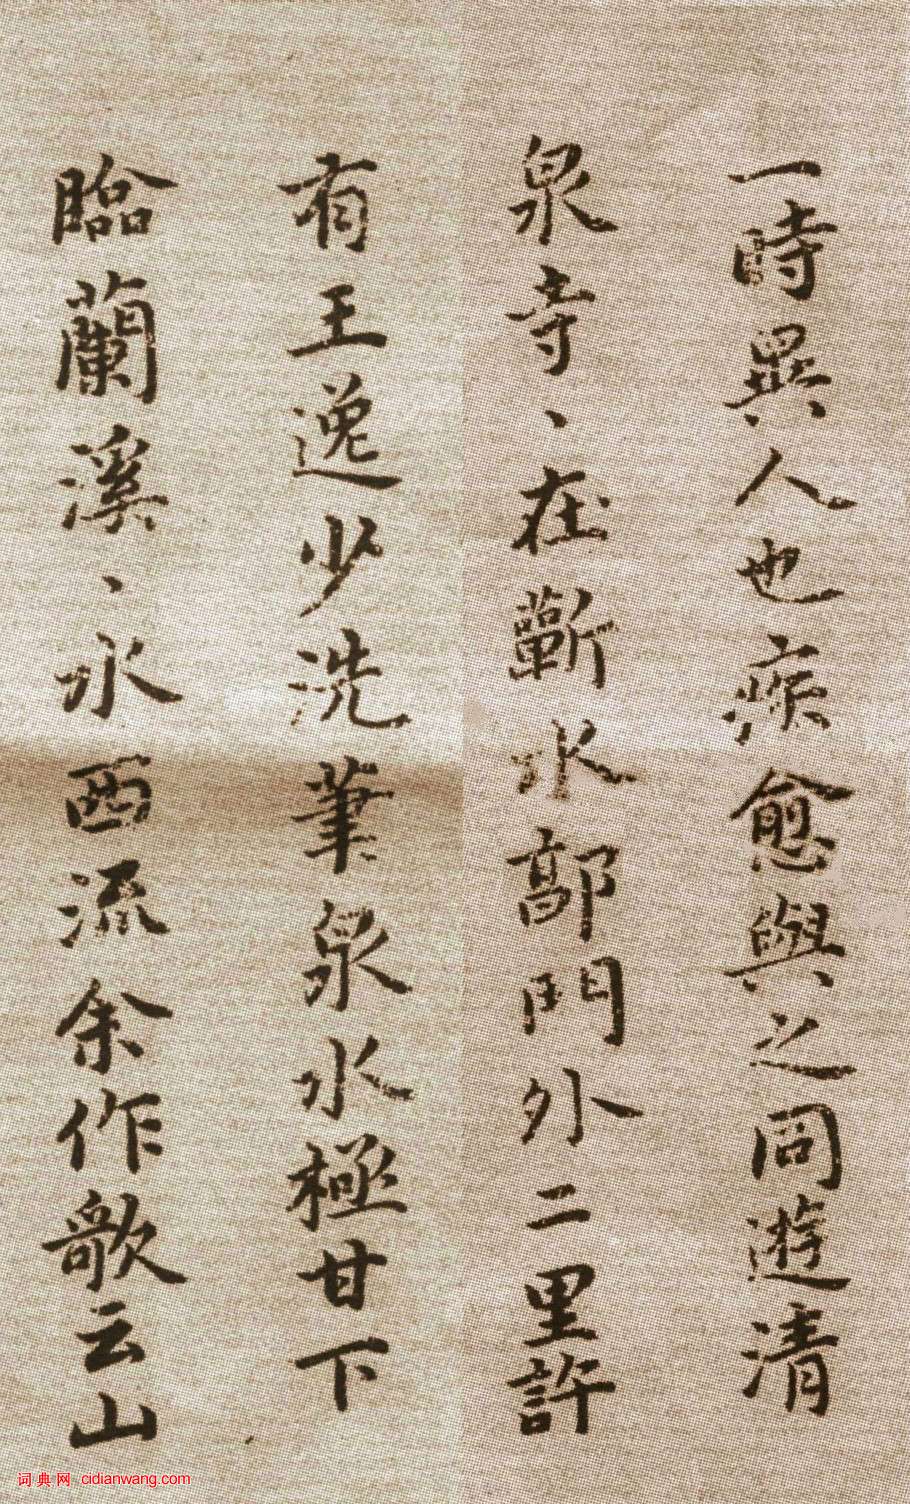 一時異人也疾愈與之同遊清
泉寺、在蘄水郭門外二里許
有王逸少洗筆泉水極甘下
臨蘭溪、水西流余作歌云山
词典网 cidianwang.com